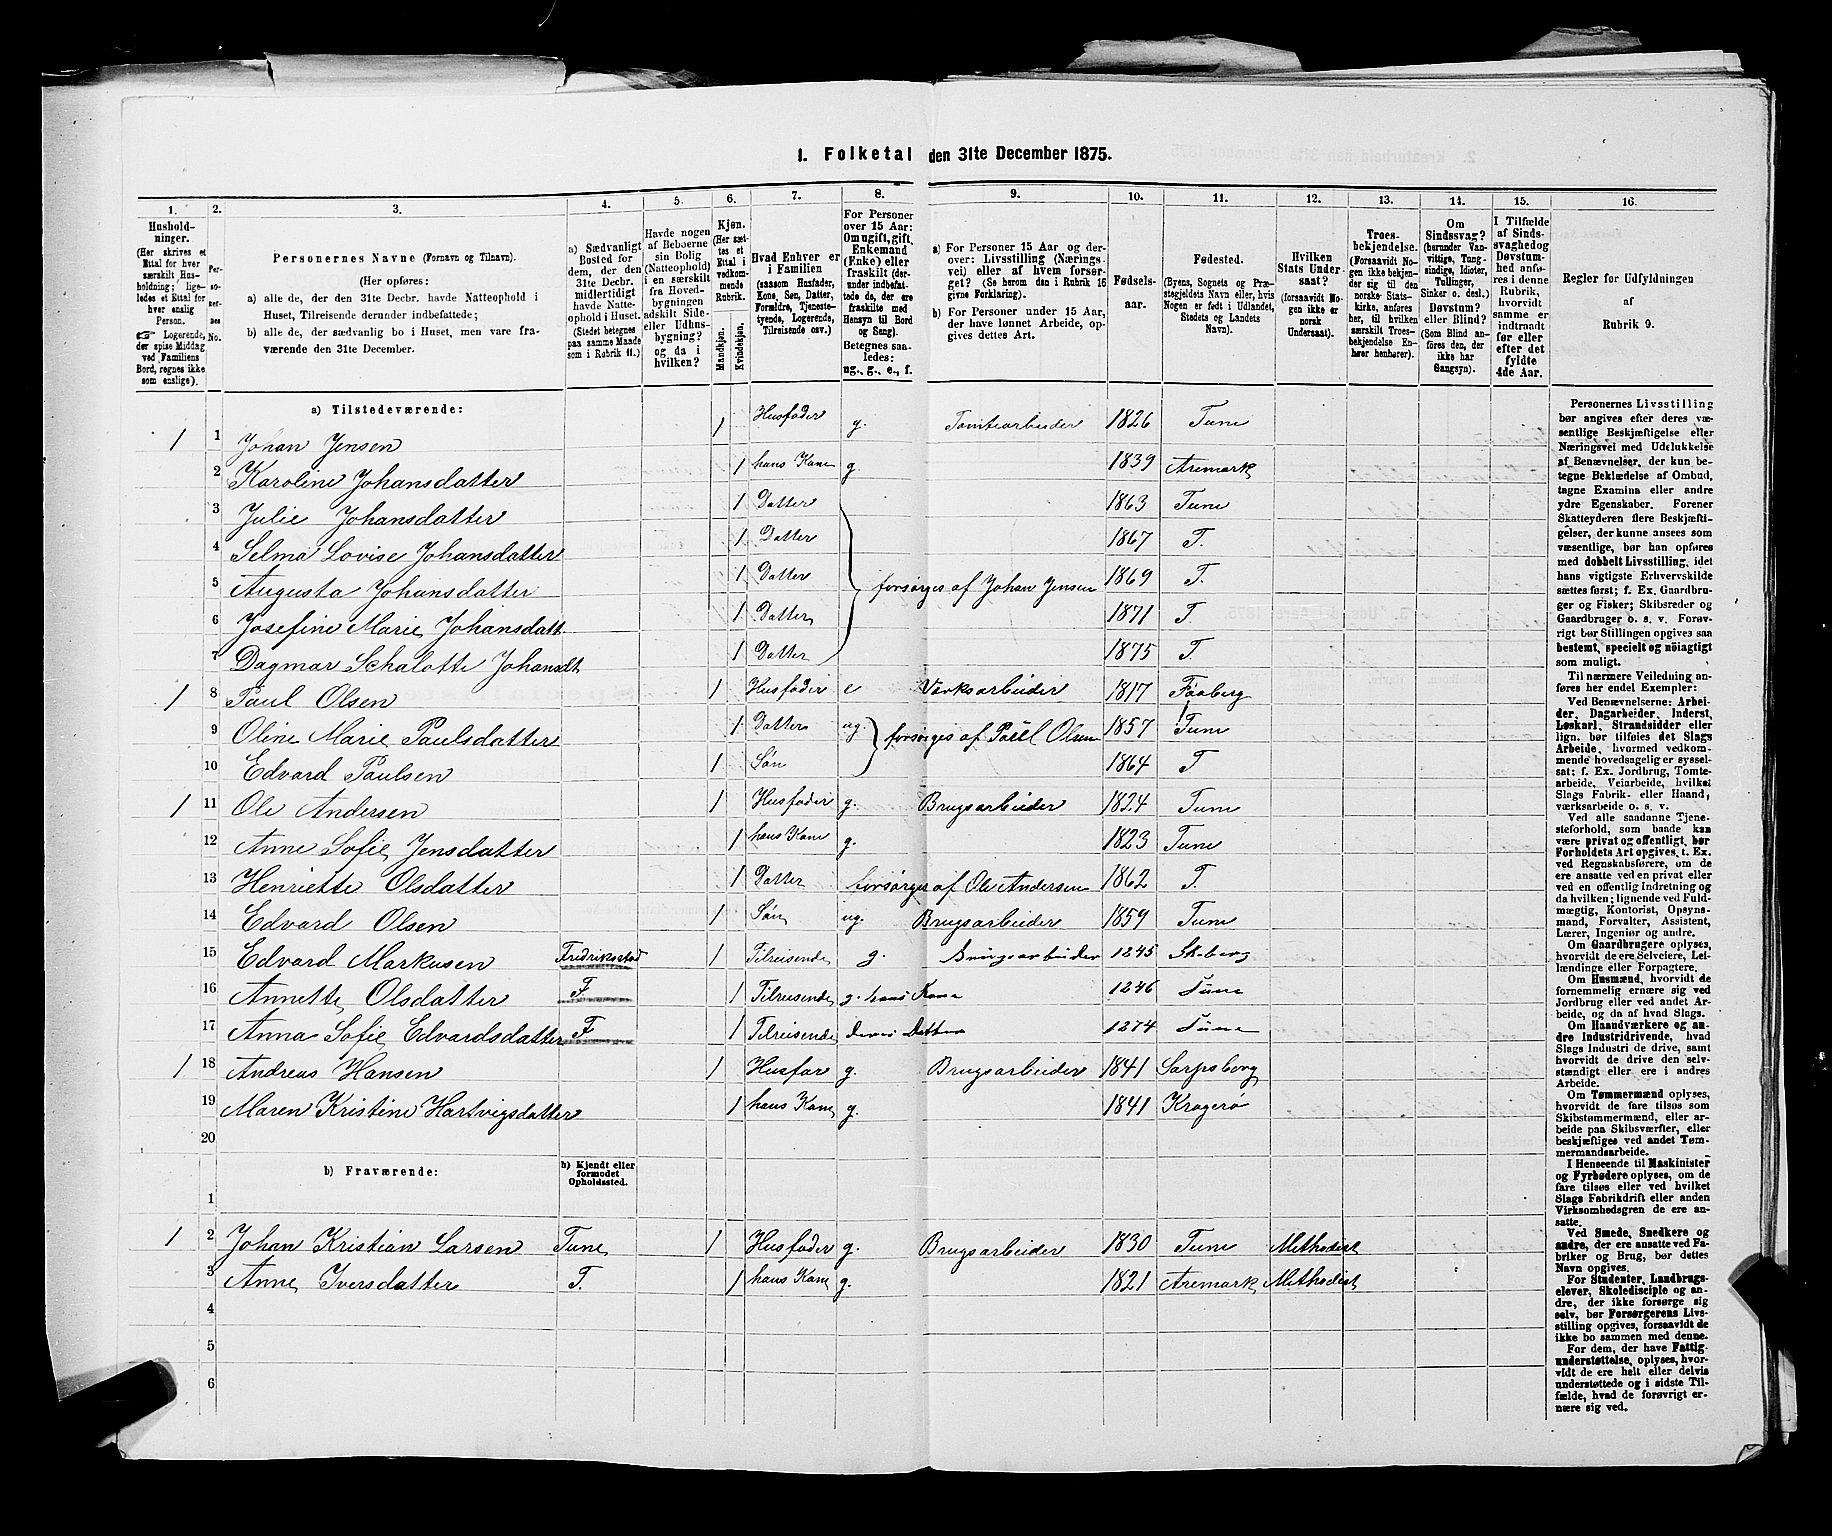 1. Folketal den 31te December 1875.
1. 2. 3. 4. 5. 6. 7. 8. 9. 10. 11. 12. 13. 14. 15. 16.
Hushold-
ninger.
(Her skrives et
Ettal for hver
særskilt Hus-
holdning; lige-
ledes et Ettal for
hver enslig
Person.
☞ Logerende,
der spise Middag
ved Familiens
Bord, regnes ikke
som enslige).
Per-
so-
ner-
nes
No.
Personernes Navne (Fornavn og Tilnavn).
(Her opføres:
a) alle de, der den 31te Decbr. havde Natteophold i
Huset, Tilreisende derunder indbefattede;
b) alle de, der sædvanlig bo i Huset, men vare fra-
værende den 31te December.
a) Sædvanligt
Bosted for
dem, der den
31te Decbr.
midlertidigt
havde Natte-
ophold i Huset.
(Stedet betegnes
paa samme Maade
som i Rubrik 11.)
Havde nogen
af Beboerne
sin Bolig
(Natteophold)
i en særskilt
fra Hoved-
bygningen
adskilt Side-
eller Udhus-
bygning?
og da i
hvilken?
Kjøn.
(Her sæt-
tes et
Ettal i
vedkom-
mende
Rubrik.
Mandkjøn.
Kvindekjøn.
Hvad Enhver er
i Familien
(saasom Husfader,
Kone, Søn, Datter,
Forældre, Tjeneste-
tyende, Logerende,
Tilreisende osv.)
For Personer
over 15 Aar:
Om ugift, gift,
Enkemand
(Enke) eller
fraskilt (der-
under indbefat-
tede de, der ere
fraskilte med
Hensyn til Bord
og Seng).
Betegnes saa-
ledes:
ug., g., e., f.
a) For Personer 15 Aar og der-
over: Livsstilling (Nærings-
vei) eller af hvem forsør-
get? (Se herom den i Rubrik 16
givne Forklaring).
b) For Personer under 15 Aar,
der have lønnet Arbeide, op-
gives dettes Art.
Fødsels-
aar.
Fødested.
(Byens, Sognets og Præ-
stegjeldets Navn eller, hvis
Nogen er født i Udlandet,
Stedets og Landets
Navn).
Hvilken
Stats Under-
saat?
(forsaavidt No-
gen ikke er
norsk
Undersaat).
Troes-
bekjendelse.
(Forsaavidt No-
gen ikke bekjen-
der sig til den
norske Stats-
kirke, anføres
her, til hvilken
særskilt Troes-
bekjendelse En-
hver henhører).
Om
Sindssvag?
(herunder Van-
vittige, Tung-
sindige, Idioter,
Tullinger,
Sinker o. desl.)
Døvstum?
eller Blind?
(Som Blind an-
føres den, der
ikke har
Gangsyn).
I Tilfælde
af Sinds-
svaghed og
Døvstum-
hed anfø-
res i denne
Rubrik,
hvorvidt
samme er
indtraadt
før eller
efter det
fyldte
4de Aar.
Regler for Udfyldningen
af
Rubrik 9.
a) Tilstedeværende:
1 1 Johan Jensen 1 Husfader g. Tomtearbeider 1826 Tune
2 Karoline Johansdatter 1 hans Kone g 1839 Aremark
3 Julie Johansdatter 1 Datter 1863 Tune
4 Selma Lovise Johansdatter 1 Datter 1867 T.
5 Augusta Johansdatter 1 Datter forsørges af Johan Jensen 1869 T.
6 Josefine Marie Johansdatt. 1 Datter 1871 T.
7 Dagmar Schalotte Johansdt 1 Datter 1875 T
1 8 Paul Olsen 1 Husfader e Værksarbeider 1817 Faaberg
9 Oline Marie Paulsdatter 1 Datter ug. forsørges af Paul Olsen 1857 Tune
10 Edvard Paulsen 1 Søn 1864 T
1 11 Ole Andersen 1 Husfader g. Brugsarbeider 1824 Tune
12 Anne Sofie Jensdatter 1 hans Kone g. 1823 Tune
13 Henriette Olsdatter 1 Datter forsørges af Ole Andersen 1862 T.
14 Edvard Olsen 1 Søn ug. Brugsarbeider 1859 Tune
15 Edvard Markusen Fredriksstad 1 Tilreisende g. Brugsarbeider 1845 Skeberg
16 Annette Olsdatter F 1 Tilreisende g. hans Kone 1846 Tune
17 Anna Sofie Edvardsdatter F 1 Tilreisende deres Datter 1874 Tune
1 18 Andreas Hansen 1 Husfar g. Brugsarbeider 1841 Sarpsborg
19 Maren Kristine Hartvigsdatter 1 hans Kone g. 1841 Kragerø
20
b) Fraværende:
b) Kjendt eller
formodet
Opholdssted.
1
1 2 Johan Kristian Larsen Tune 1 Husfader g. Brugsarbeider 1830 Tune Methodist
3 Anne Iversdatter T. 1 hans Kone g. 1821 Aremark Methodist
4
5
6
Personernes Livsstilling
bør angives efter deres væ-
sentlige Beskjæftigelse eller
Næringsvei med Udelukkelse
af Benævnelser, der kun be-
tegne Beklædelse af Ombud,
tagne Examina eller andre
ydre Egenskaber. Forener
Skatteyderen flere Beskjæfti-
gelser, der kunne ansees som
væsentlige, bør han opføres
med dobbelt Livsstilling, idet
hans vigtigste Erhvervskilde
sættes først; f. Ex. Gaardbru-
ger og Fisker; Skibsreder og
Gaardbruger o. s. v. Forøv-
rigt bør Stillingen opgives saa
bestemt, specielt og nöiagtigt
som muligt.
Til nærmere Veiledning an-
føres her endel Exempler:
Ved Benævnelserne: Arbei-
der, Dagarbeider, Inderst,
Løskarl, Strandsidder eller
lign. bør tilføies det Slags
Arbeide, hvormed vedkom-
mende hovedsagelig er syssel-
sat; f. Ex. Jordbrug, Tomte-
arbeide, Veiarbeide, hvilket
Slags Fabrik- eller Haand-
værksarbeide o. s. v.
Ved alle saadanne Tjene-
steforhold, som baade kan
være privat og offentligt, bør
Forholdets Art opgives, t. Ex.
ved Regnskabsførere, om de
ere ansatte ved en privat eller
ved en offentlig Indretning og
da hvilken; lignende ved Fuld-
mægtig, Kontorist, Opsyns-
mand, Forvalter, Assistent,
Lærer, Ingeniør og andre.
Om Gaardbrugere oplyses,
hvorvidt de ere Selveiere, Lei-
lændinge eller Forpagtere.
Om Husmænd, hvorvidt de
fornemmelig ernære sig ved
Jordbrug eller ved andet Ar-
beide, og da af hvad Slags.
Om Haandværkere og an-
dre Industridrivende, hvad
Slags Industri de drive, samt
hvorvidt de drive den selv-
stændigt eller ere i andres
Arbeide.
Om Tømmermænd oplyses,
hvorvidt de fare tilsøs som
Skibstømmermænd, eller ar-
beide paa Skibsværfter, eller
beskjæftiges ved andet Tøm-
mermandsarbeide.
I Henseende til Maskinister
og Fyrbødere oplyses, om de
fare tilsøs eller ved hvilket
Slags Fabrikdrift eller anden
Virksomhedsgren de ere an-
satte.
Ved Smede, Snedkere og
andre, der ere ansatte ved Fa-
briker og Brug, bør dettes
Navn opgives.
For Studenter, Landbrugs-
elever, Skoledisciple og an-
dre, der ikke forsørge sig
selv, bør Forsørgerens Livs-
stilling opgives, forsaavidt de
ikke bo sammen med denne.
For dem, der have Fattig-
understøttelse, oplyses, hvor-
vidt de ere helt eller delvis
understøttede og i sidste Til-
fælde, hvad de forøvrigt er-
nære sig ved.